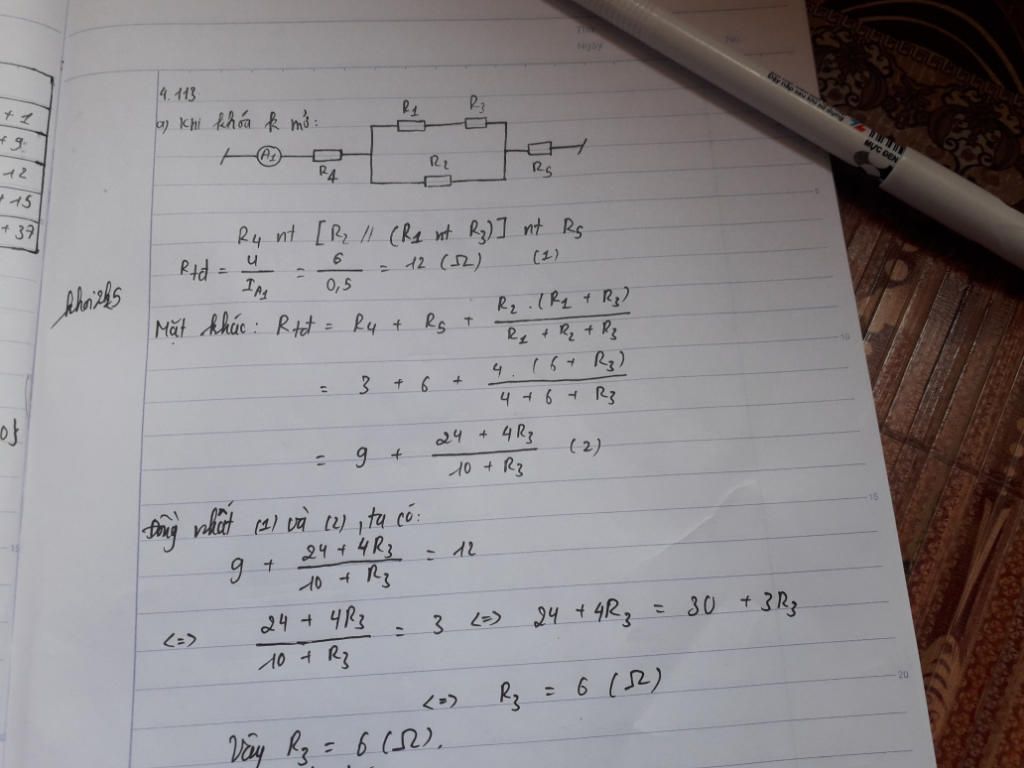 + 1
+ 9
12
+ 15
+ 37
Thứ
Ngày
No
MỰC ĐEN
4.113
a) Khi khóa k mở:
R1 R3
A1 R4 R2 R5
R4 nt [R2 // (R1 nt R3)] nt R5
Rtđ = U / I_A1 = 6 / 0,5 = 12 (Ω) (1)
khoi2k5
Mặt khác: Rtđ = R4 + R5 + R2 . (R1 + R3) / R1 + R2 + R3
= 3 + 6 + 4 . (6 + R3) / 4 + 6 + R3
= 9 + 24 + 4R3 / 10 + R3 (2)
Đồng nhất (1) và (2), ta có:
9 + 24 + 4R3 / 10 + R3 = 12
<=> 24 + 4R3 / 10 + R3 = 3 <=> 24 + 4R3 = 30 + 3R3
<=> R3 = 6 (Ω)
Vậy R3 = 6 (Ω).
5
10
15
20
15